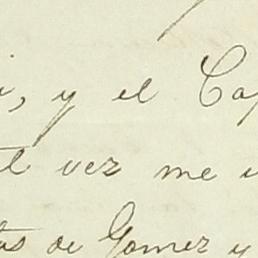 i, y el Cap
al vez me
tas de Gomez y